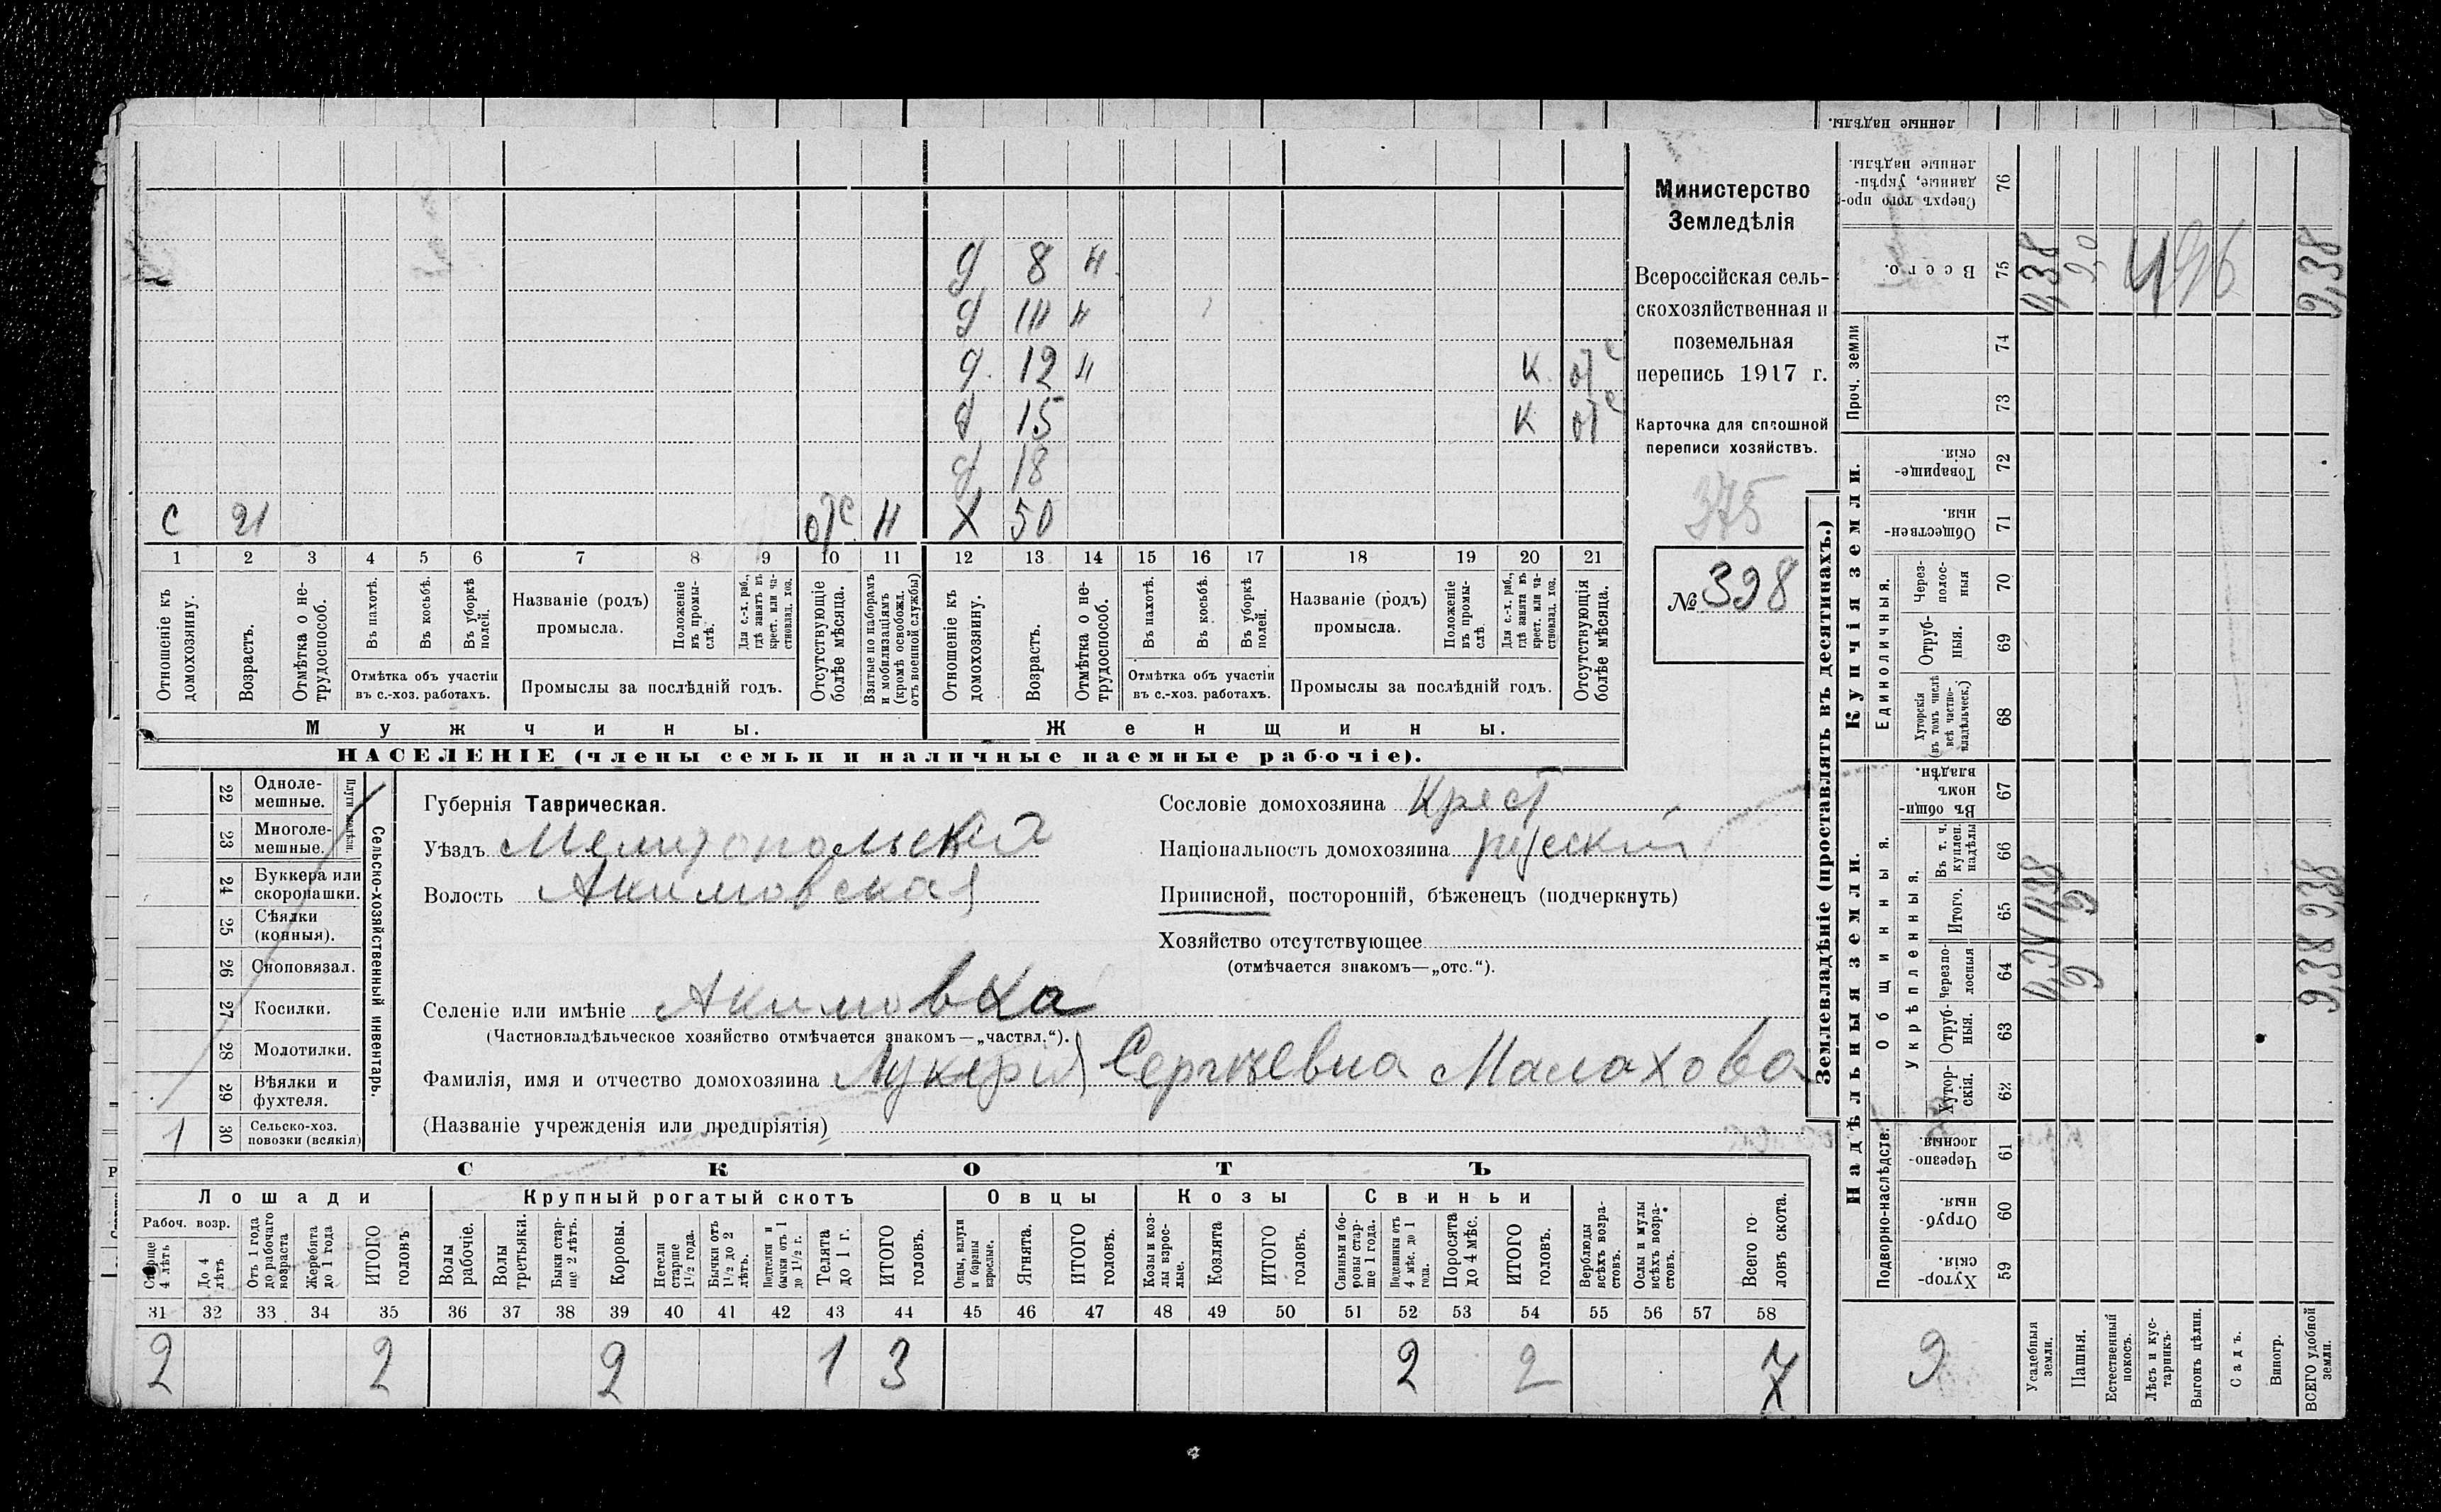 ленные надѣлы.
д 8 н
д 111 н
д. 12 н к отс
д 15 к отс
д 18
с 21 отс н х 50
1 2 3 4 5 6 7 8 9 10 11 12 13 14 15 16 17 18 19 20 21
Отношеніе къ домохозяину.
Возрастъ.
Отмѣтка о нетрудоспособ.
Въ пахотѣ.
Въ косьбѣ.
Въ уборкѣ полей.
Отмѣтка объ участіи
въ с.-хоз. работахъ.
Названіе (родъ)
промысла.
Положеніе въ промыслѣ.
Для с.-х. раб., гдѣ занятъ въ крест. или частновлад. хоз.
Промыслы за послѣдній годъ.
Отсутствующіе болѣе мѣсяца.
Взятые по наборамъ и мобилизаціямъ (кромѣ освобожд. отъ военной службы)
Отношеніе къ домохозяину.
Возрастъ.
Отмѣтка о нетрудоспособ.
Въ пахотѣ.
Въ косьбѣ.
Въ уборкѣ полей.
Отмѣтка объ участіи
въ с.-хоз. работахъ.
Названіе (родъ)
промысла.
Положеніе въ промыслѣ.
Для с.-х. раб., гдѣ занята въ крест. или частновлад. хоз.
Промыслы за послѣдній годъ.
Отсутствующія болѣе мѣсяца.
Мужчины. Женщины.
НАСЕЛЕНІЕ (члены семьи и наличные наемные рабочіе).
Министерство
Земледѣлія
Всероссійская сель-
скохозяйственная и
поземельная
перепись 1917 г.
Карточка для сплошной
переписи хозяйствъ.
375
№ 398
Плуги
22 Одноле-
мешные.
23 Многоле-
мешные.
24 Буккера или
скоропашки.
25 Сѣялки
(конныя).
26 Сноповязал.
27 Косилки.
28 Молотилки.
29 Вѣялки и
фухтеля.
1 30 Сельско-хоз.
повозки (всякія)
Сельско-хозяйственный инвентарь.
Губернія Таврическая.
Уѣздъ Мелитопольскій
Волость Акимовская
Сословіе домохозяина Крест
Національность домохозяина русскій
Приписной, посторонній, бѣженецъ (подчеркнуть)
Хозяйство отсутствующее
(отмѣчается знакомъ—„отс.“).
Селеніе или имѣніе Акимовка
(Частновладѣльческое хозяйство отмѣчается знакомъ—„частвл.“).
Фамилія, имя и отчество домохозяина Лукерія Сергѣевна Малахова
(Названіе учрежденія или предпріятія)
СКОТЪ
Лошади Крупный рогатый скотъ Овцы Козы Свиньи
Рабоч. возр.
Старше 4 лѣтъ
До 4 лѣтъ
Отъ 1 года до рабочаго возраста
Жеребята до 1 года
ИТОГО головъ
Волы рабочіе.
Волы третьяки.
Быки старше 2 лѣтъ.
Коровы.
Нетели старше 1½ года.
Бычки отъ 1½ до 2 лѣтъ.
Подтелки и бычки отъ 1 до 1½ г.
Телята до 1 г.
ИТОГО головъ.
Овцы, валухи и бараны взрослые.
Ягнята.
ИТОГО головъ.
Козы и козлы взрослые.
Козлята
ИТОГО головъ.
Свиньи и боровы старше 1 года.
Подсвинки отъ 4 мѣс. до 1 года.
Поросята до 4 мѣс.
ИТОГО головъ.
Верблюды всѣхъ возрастовъ.
Ослы и мулы всѣхъ возрастовъ.
Всего головъ скота.
31 32 33 34 35 36 37 38 39 40 41 42 43 44 45 46 47 48 49 50 51 52 53 54 55 56 57 58
2 2 2 1 3 2 2 7
Землевладѣніе (проставлять въ десятинахъ.)
Надѣльныя земли. Купчія земли. Проч. земли
Подворно-наслѣдств.
Общинныя.
Укрѣпленныя.
Единоличныя.
59 Хуторскія.
60 Отрубныя.
61 Черезполосныя.
62 Хуторскія.
63 Отрубныя.
64 Черезполосныя
65 Итого.
66 Въ т. ч. куплен. надѣлы
67 Въ общинномъ владѣн.
68 Хуторскія (въ томъ числѣ всѣ частновладѣльческ.)
69 Отрубныя.
70 Черезполосныя
71 Общественныя.
72 Товарищескія.
73
74
75 Всего.
76 Сверхъ того проданные, укрѣпленные надѣлы.
9
Усадебныя земли. 0,38
Пашня. 9 9 9,0
Естественный покосъ.
Лѣсъ и кустарникъ.
Выгонъ цѣлин.
Садъ.
Виногр.
ВСЕГО удобной земли. 9,38 9,38 9,38